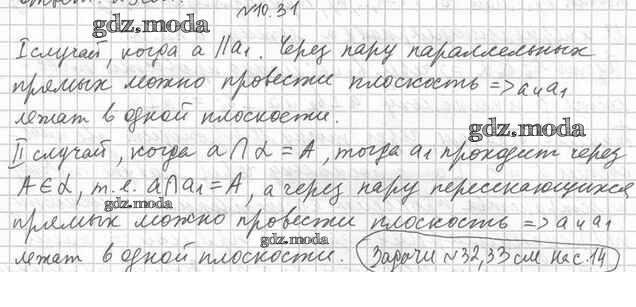 №10.31
gdz.moda
I случай, когда a ∥ a₁. Через пару параллельных
прямых можно провести плоскость => a и a₁
лежат в одной плоскости.
gdz.moda
II случай, когда a ∩ α = A, тогда a₁ проходит через
A ∈ α, т.е. a ∩ a₁ = A, а через пару пересекающихся
gdz.moda
прямых можно провести плоскость => a и a₁
gdz.moda
лежат в одной плоскости. Задачи №32,33 см. на с.14